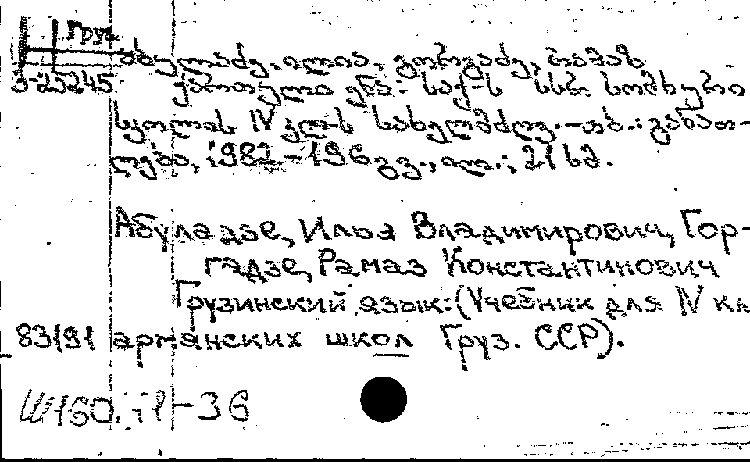 Груз
3-25245 აბულაძე, ილია, გორგაძე, რამაზ
ქართული ენა: საქ-ს სსრ სომხური
სკოლის IV კლ-ს სახელმძღვ.-თბ.: განათ-
ლება, 1982-196 გვ., ილ.; 21 სმ.
Абуладзе, Илья Владимирович, Гор-
гадзе, Рамаз Константинович
Грузинский язык: (Учебник для IV кл.
83191 армянских школ Груз. ССР).